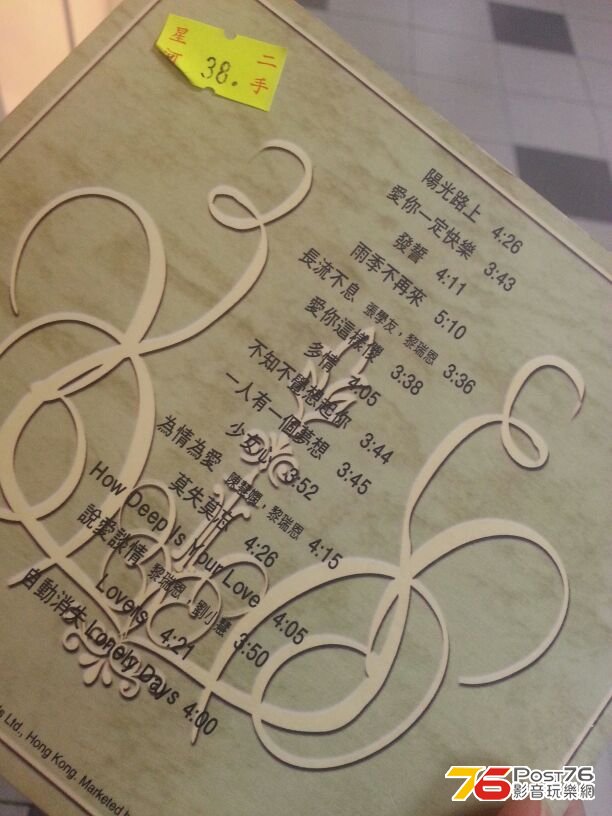 星河
38.
二手
陽光路上 4:26
愛你一定快樂 3:43
發誓 4:11
雨季不再來 5:10
長流不息 張學友，黎瑞恩 3:36
愛你這樣傻 3:38
多情 4:05
不知不覺想起你 3:44
一人有一個夢想 3:45
少女心 3:52
為情為愛 陳慧嫻，黎瑞恩 4:15
莫失莫忘 4:26
How Deep Is Your Love 4:05
說愛談情 黎瑞恩，劉小慧 3:50
Lovers 4:21
自動消失 Lonely Days 4:00
Ltd., Hong Kong. Marketed
76 POST76
影音玩樂網